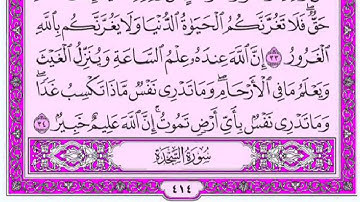 حَقٌّ ۖ فَلَا تَغُرَّنَّكُمُ ٱلْحَيَوٰةُ ٱلدُّنْيَا وَلَا يَغُرَّنَّكُم بِٱللَّهِ
ٱلْغَرُورُ ٣٣ إِنَّ ٱللَّهَ عِندَهُۥ عِلْمُ ٱلسَّاعَةِ وَيُنَزِّلُ ٱلْغَيْثَ
وَيَعْلَمُ مَا فِى ٱلْأَرْحَامِ ۖ وَمَا تَدْرِى نَفْسٌ مَّاذَا تَكْسِبُ غَدًا ۖ
وَمَا تَدْرِى نَفْسٌۢ بِأَىِّ أَرْضٍ تَمُوتُ ۚ إِنَّ ٱللَّهَ عَلِيمٌ خَبِيرٌۢ ٣٤
سُورَةُ السَّجْدَةِ
٤١٤